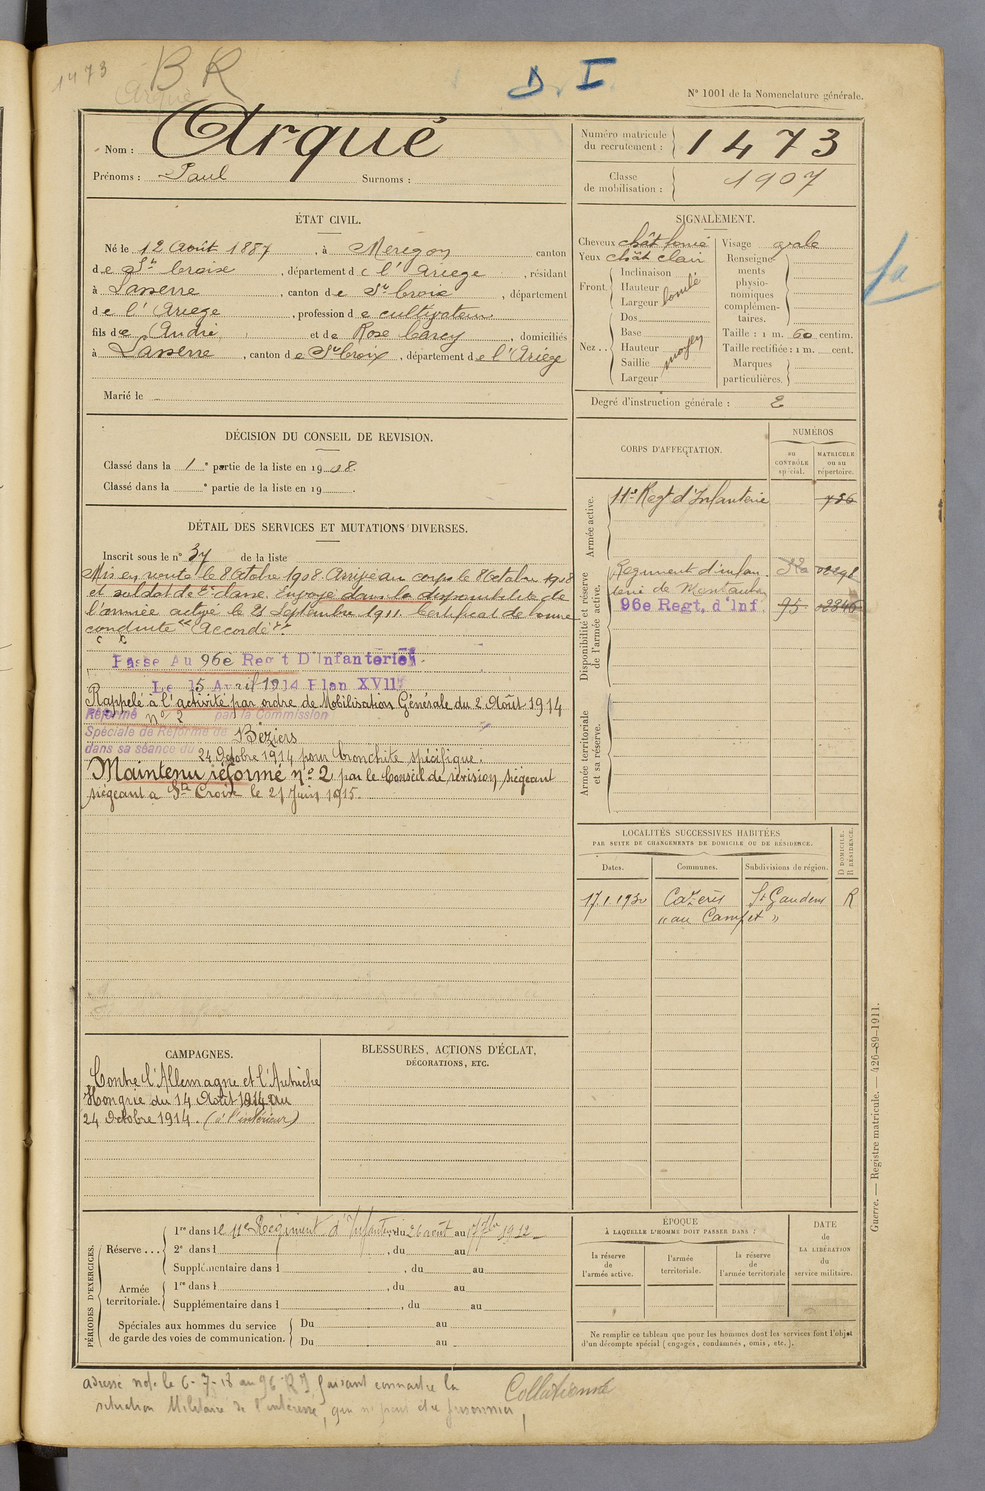 1473
BR
D. I
N° 1001 de la Nomenclature générale.
Nom : Arqué
Prénoms : Paul Surnoms :
Numéro matricule du recrutement : 1473
Classe de mobilisation : 1907
ÉTAT CIVIL.
Né le 12 Août 1887, à Merigon canton
de Ste Croix, département de l'Ariège, résidant
à Lasserre, canton de Ste Croix, département
de l'Ariège, profession de cultivateur
fils de André et de Rose Carcy, domiciliés
à Lasserre, canton de Ste Croix, département de l'Ariège
Marié le
SIGNALEMENT.
Cheveux chât foncé
Yeux chât clair
Front. Inclinaison
Hauteur
Largeur bombé
Nez.. Dos
Base
Hauteur moyen
Saillie
Largeur
Visage ovale
Renseignements physionomiques complémentaires.
Taille : 1 m. 60 centim.
Taille rectifiée : 1 m. cent.
Marques particulières.
Degré d'instruction générale : 2
DÉCISION DU CONSEIL DE REVISION.
Classé dans la 1e partie de la liste en 1908.
Classé dans la e partie de la liste en 19 .
DÉTAIL DES SERVICES ET MUTATIONS DIVERSES.
Inscrit sous le n° 37 de la liste
Mis en route le 8 Octobre 1908. Arrivé au corps le 8 Octobre 1908
et soldat de 2e classe. Envoyé dans la disponibilité de
l'armée active le 25 Septembre 1911. Certificat de bonne
conduite "Accordé".
Passé Au 96e Regt D'Infanterie
Le 15 Avril 1914 Plan XVII
Rappelé à l'activité par ordre de Mobilisation Générale du 2 Août 1914
Réformé n° 2 par la Commission
Spéciale de Réforme de Béziers
dans sa séance du 24 Octobre 1914 pour bronchite spécifique.
Maintenu réformé n° 2 par le Conseil de révision siégeant
siégeant à Ste Croix le 21 Juin 1915.
CORPS D'AFFECTATION.
NUMÉROS
au CONTRÔLE spécial.
MATRICULE ou au répertoire.
Armée active.
11e Regt d'Infanterie
Disponibilité et réserve de l'armée active.
Regiment d'infanterie de Montauban
96e Regt. d'Inf. 95
Armée territoriale et sa réserve.
LOCALITÉS SUCCESSIVES HABITÉES
PAR SUITE DE CHANGEMENTS DE DOMICILE OU DE RÉSIDENCE.
Dates. Communes. Subdivisions de région. D DOMICILE. R RÉSIDENCE.
17.1.1930 Cazères St Gaudens R
"au Campet"
CAMPAGNES.
Contre l'Allemagne et l'Autriche
Hongrie du 14 Août 1914 au
24 Octobre 1914. (à l'intérieur)
BLESSURES, ACTIONS D'ÉCLAT,
DÉCORATIONS, ETC.
PÉRIODES D'EXERCICES.
Réserve ... 1re dans le 11e Régiment d'Infanterie du 26 août au 17 7bre 1912
2e dans l , du au
Supplémentaire dans l , du au
Armée territoriale. 1re dans l , du au
Supplémentaire dans l , du au
Spéciales aux hommes du service de garde des voies de communication. Du au
Du au
ÉPOQUE
À LAQUELLE L'HOMME DOIT PASSER DANS :
la réserve de l'armée active.
l'armée territoriale.
la réserve de l'armée territoriale
DATE DE LA LIBÉRATION du service militaire.
Ne remplir ce tableau que pour les hommes dont les services font l'objet
d'un décompte spécial (engagés, condamnés, omis, etc.).
Guerre. — Registre matricule. — 426-89-1911.
adressé note le 6-7-18 au 96 RI faisant connaître la
situation Militaire de l'intéressé, qui ne peut être prisonnier
Collationné